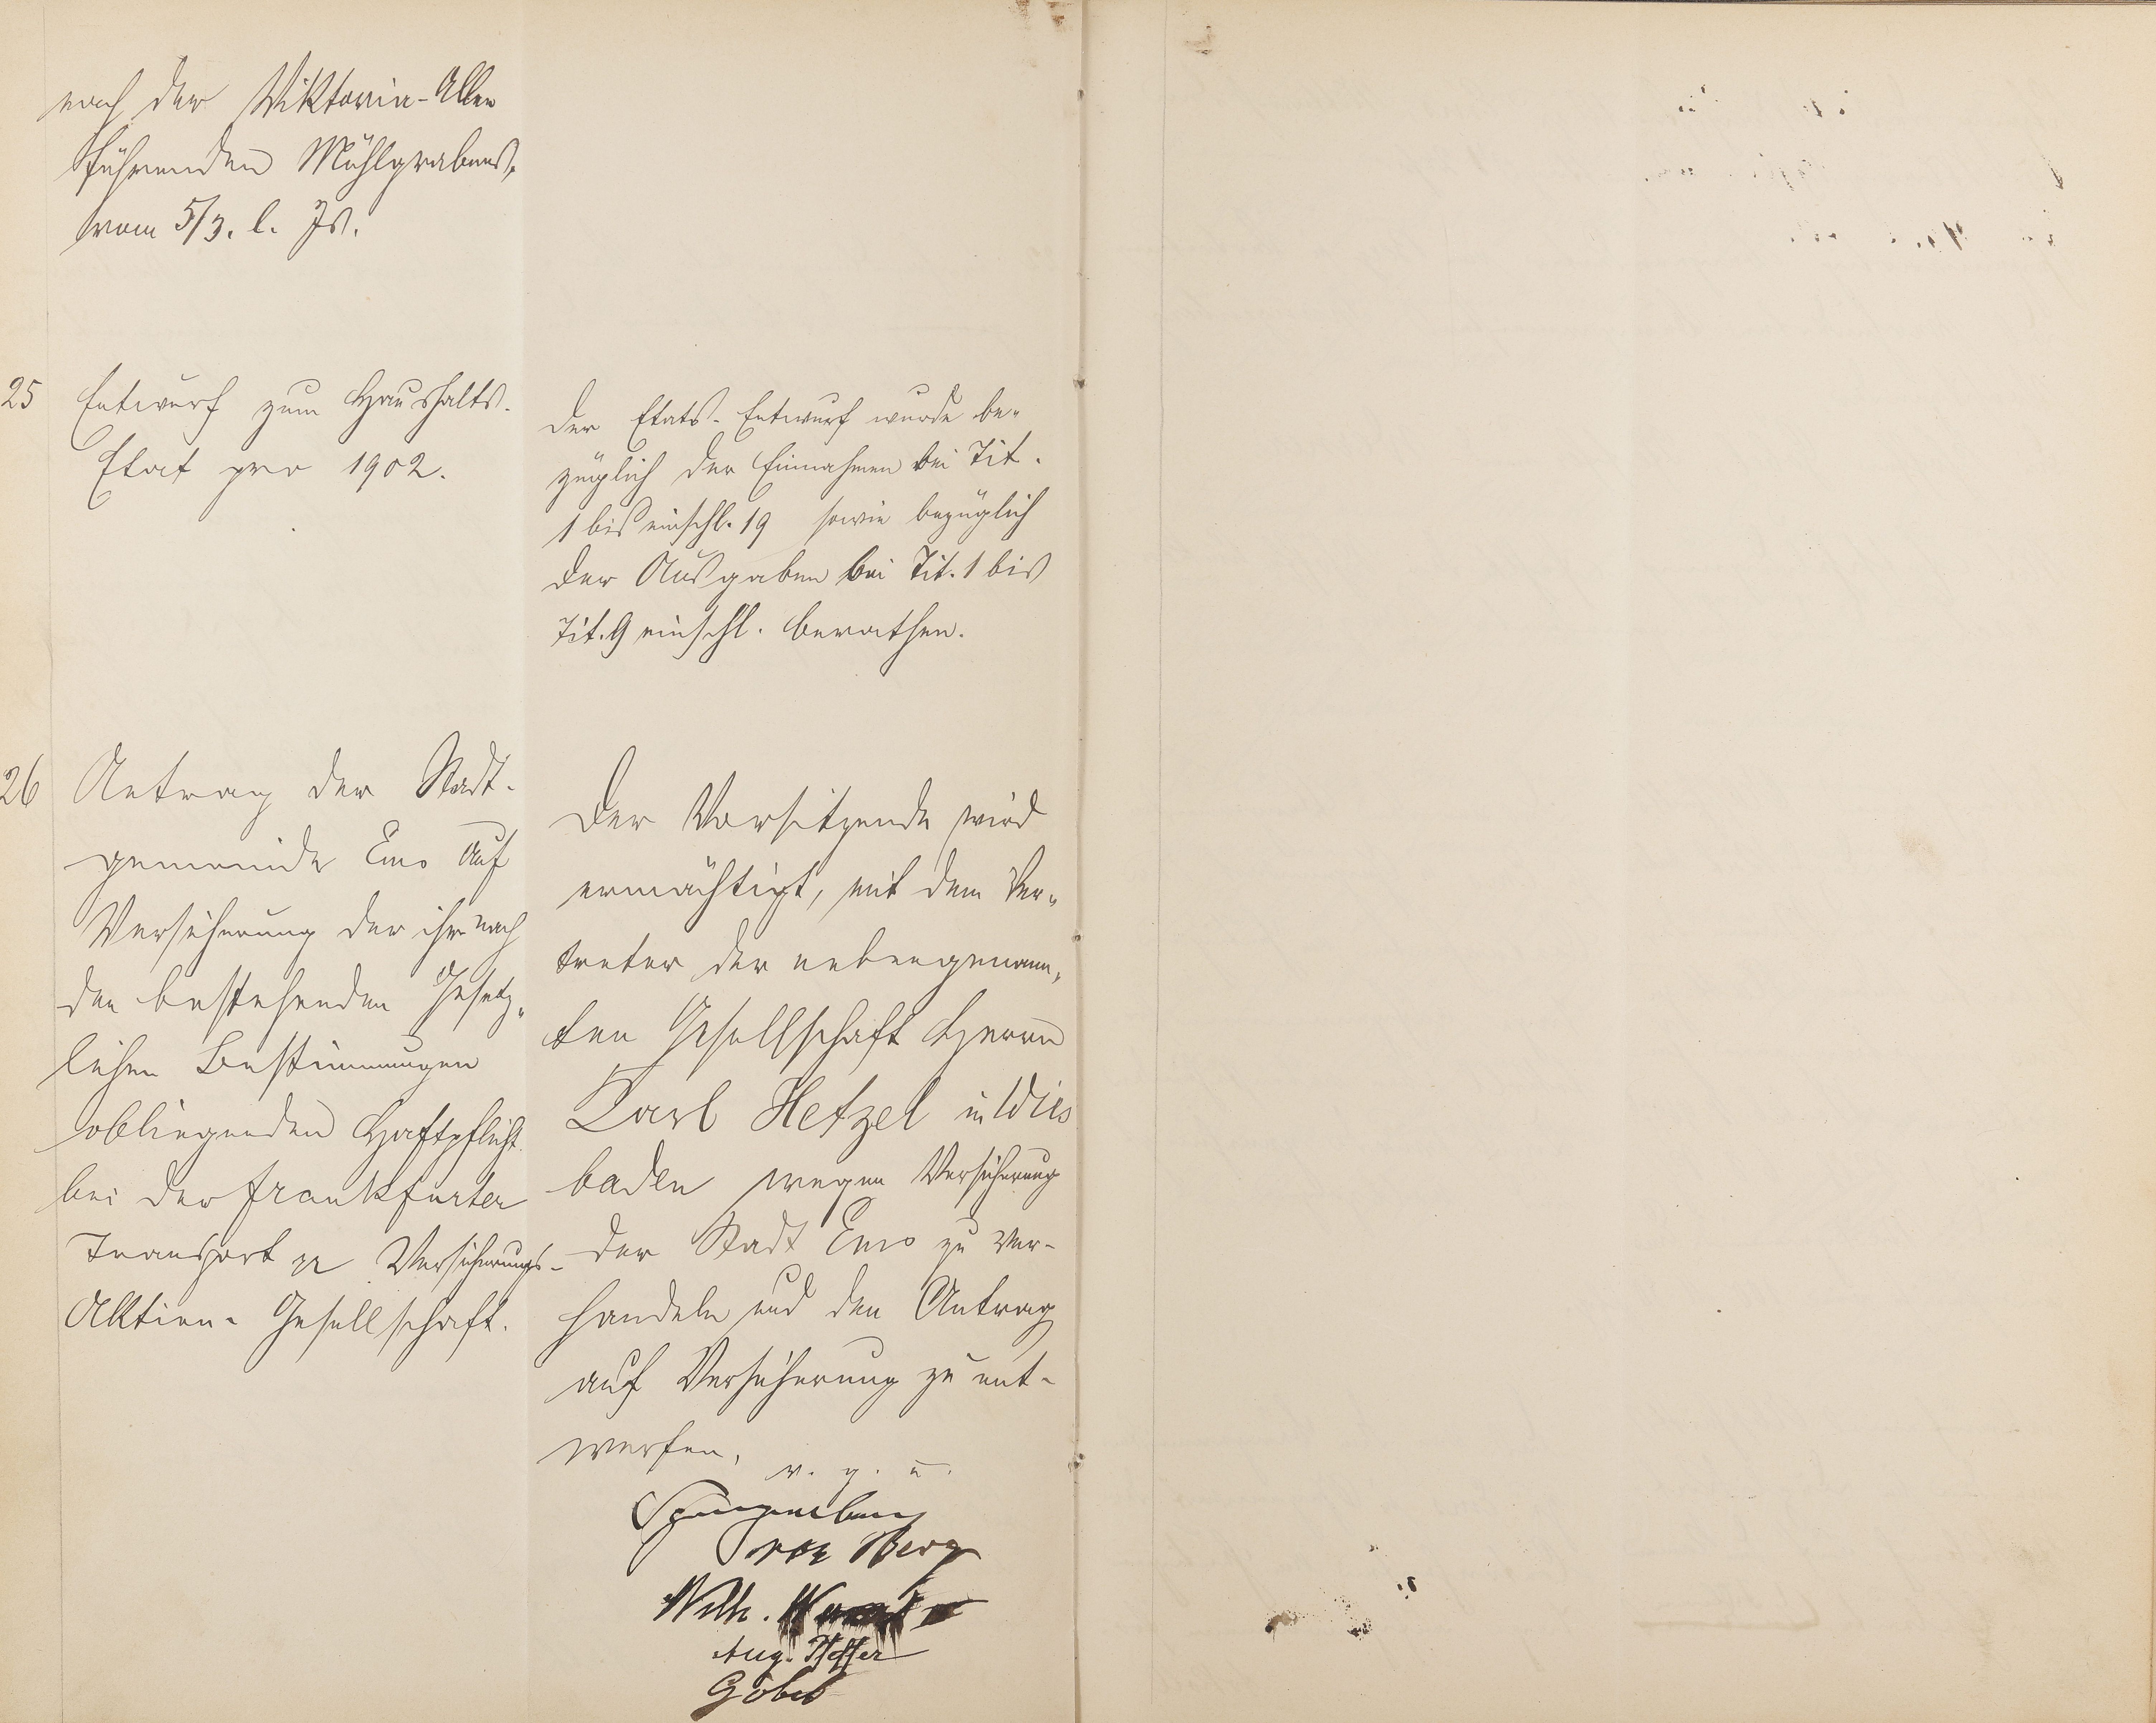 nach der Viktoria-Allee
führenden Mühlgrabens,
vom 5/3. l. Js.
25 Entwurf zum Haushalts-
Etat pro 1902.
Der Etats-Entwurf wurde be-
züglich der Einnahmen bei Tit.
1 bis einschl. 19 sowie bezüglich
der Ausgaben bei Tit. 1 bis
Tit. 9 einschl. berathen.
26 Antrag der Stadt-
gemeinde Ems auf
Versicherung der ihr nach
den bestehenden Gesetz-
lichen Bestimmungen
obliegenden Haftpflicht
bei der Frankfurter
Transport Versicherungs-
Aktien-Gesellschaft.
Der Vorsitzende wird
ermächtigt, mit dem Ver-
treter der nebengenann-
ten Gesellschaft Herrn
Carl Hetzel in Wies
baden wegen Versicherung
der Stadt Ems zu ver-
handeln und den Antrag
auf Versicherung zu ent-
werfen.
v. g. u.
Spangenberg
von Berg
Wilh.
Aug.
Göbel